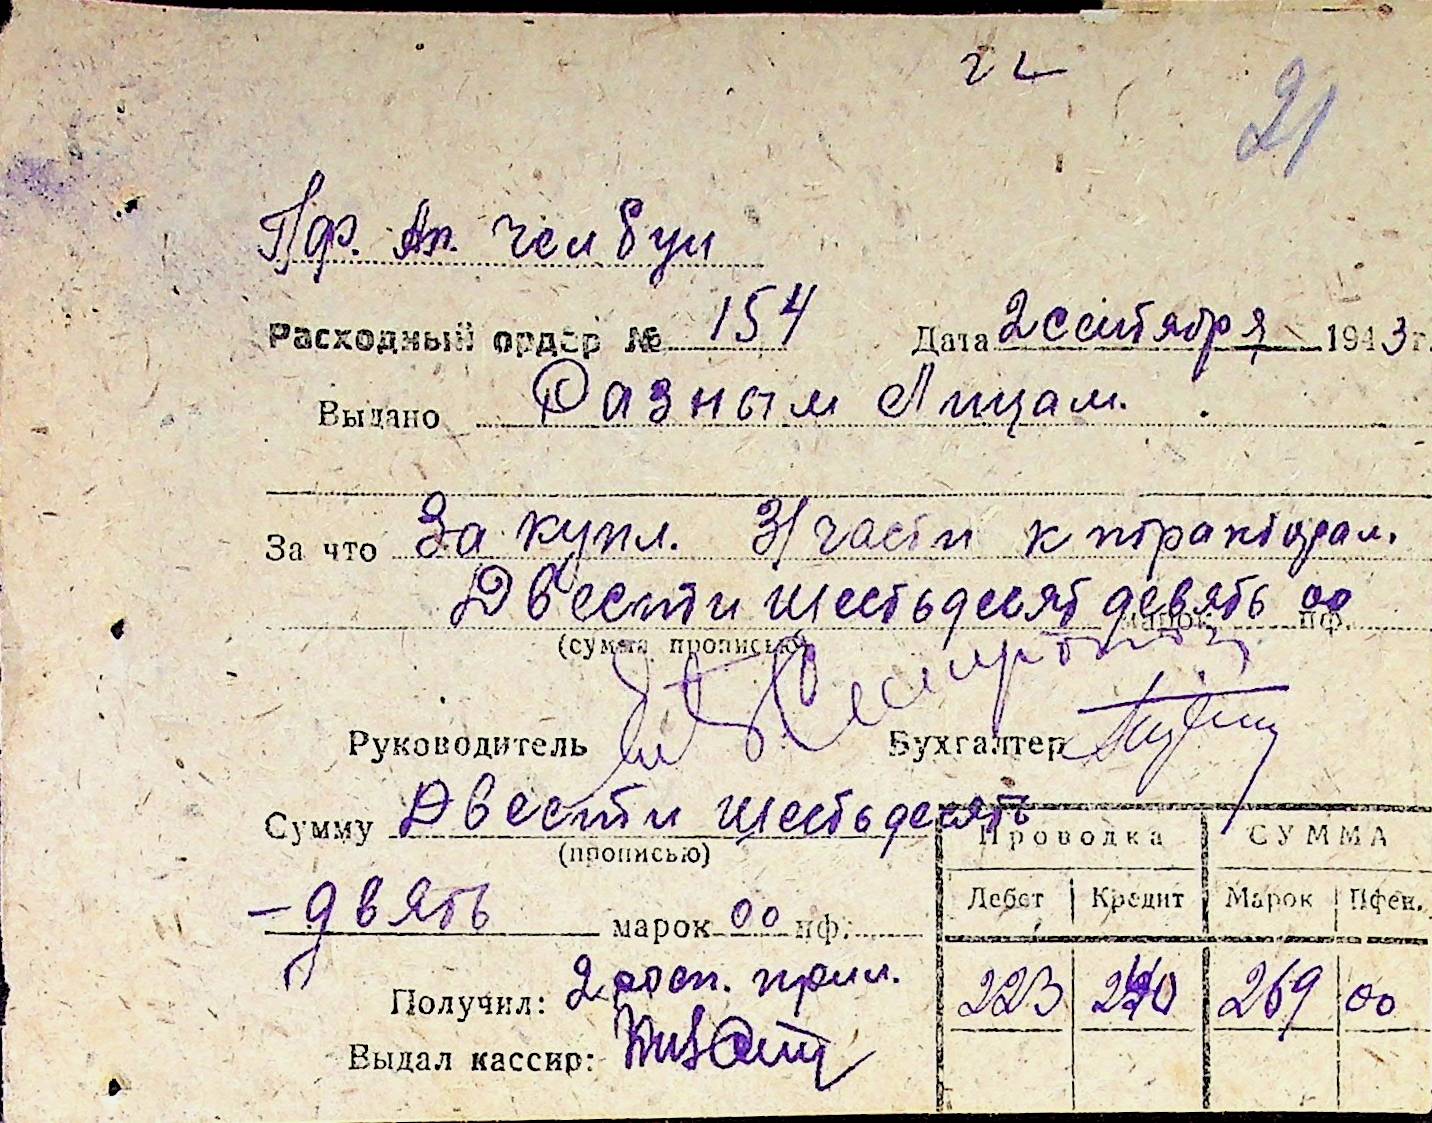 21
Пф. Ап. Челбул
Расходный ордер № 154 Дата 2 сентября 1943 г.
Выдано Разным Лицам.
За что За купл. З/части к тракторам.
Двести шестьдесят девять марок 00 пф.
(сумма прописью)
Руководитель Бухгалтер
Сумму Двести шестьдесять
(прописью)
-двять марок 00 пф.
Проводка СУММА
Дебет Кредит Марок Пфен.
223 269 00
Получил: 2 росп. прил.
Выдал кассир: